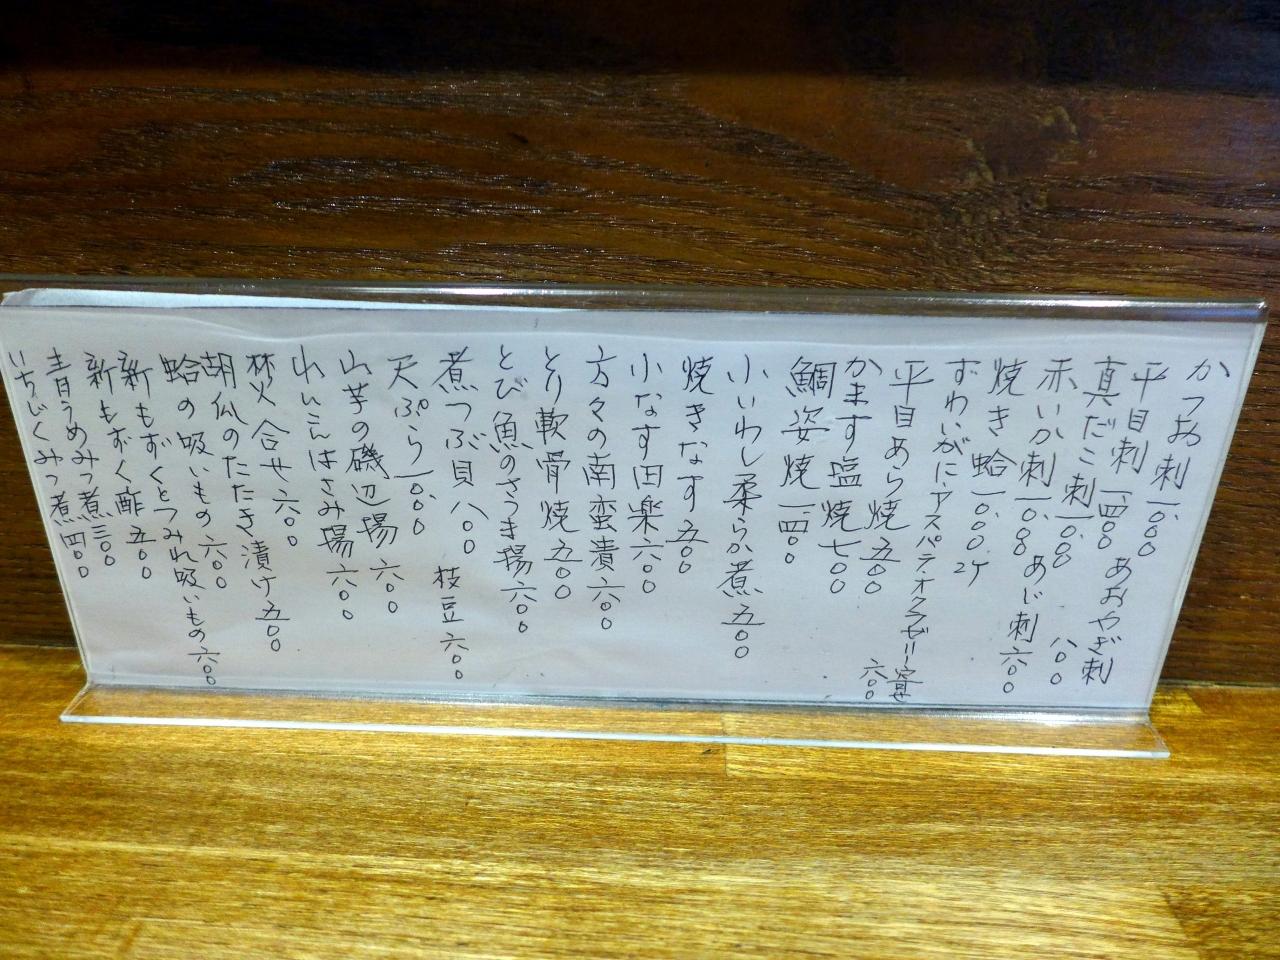 かつお刺一、〇〇〇
平目刺一、四〇〇
真だこ刺一、〇〇〇
あおやぎ刺八〇〇
赤いか刺一、〇〇〇
あじ刺六〇〇
焼き蛤一、〇〇〇 2ケ
ずわいがに、アスパラ、オクラゼリー寄せ六〇〇
平目あら焼五〇〇
かます塩焼七〇〇
鯛姿焼一、四〇〇
小いわし柔らか煮五〇〇
焼きなす五〇〇
小なす田楽六〇〇
方々の南蛮漬六〇〇
とり軟骨焼五〇〇
とび魚のさつま揚六〇〇
煮つぶ貝八〇〇
枝豆六〇〇
天ぷら一、〇〇〇
山芋の磯辺揚六〇〇
れんこんはさみ揚六〇〇
焚合せ六〇〇
胡瓜のたたき漬け五〇〇
蛤の吸いもの六〇〇
新もずくとつみれ吸いもの六〇〇
新もずく酢五〇〇
青うめみつ煮三〇〇
いちじくみつ煮四〇〇